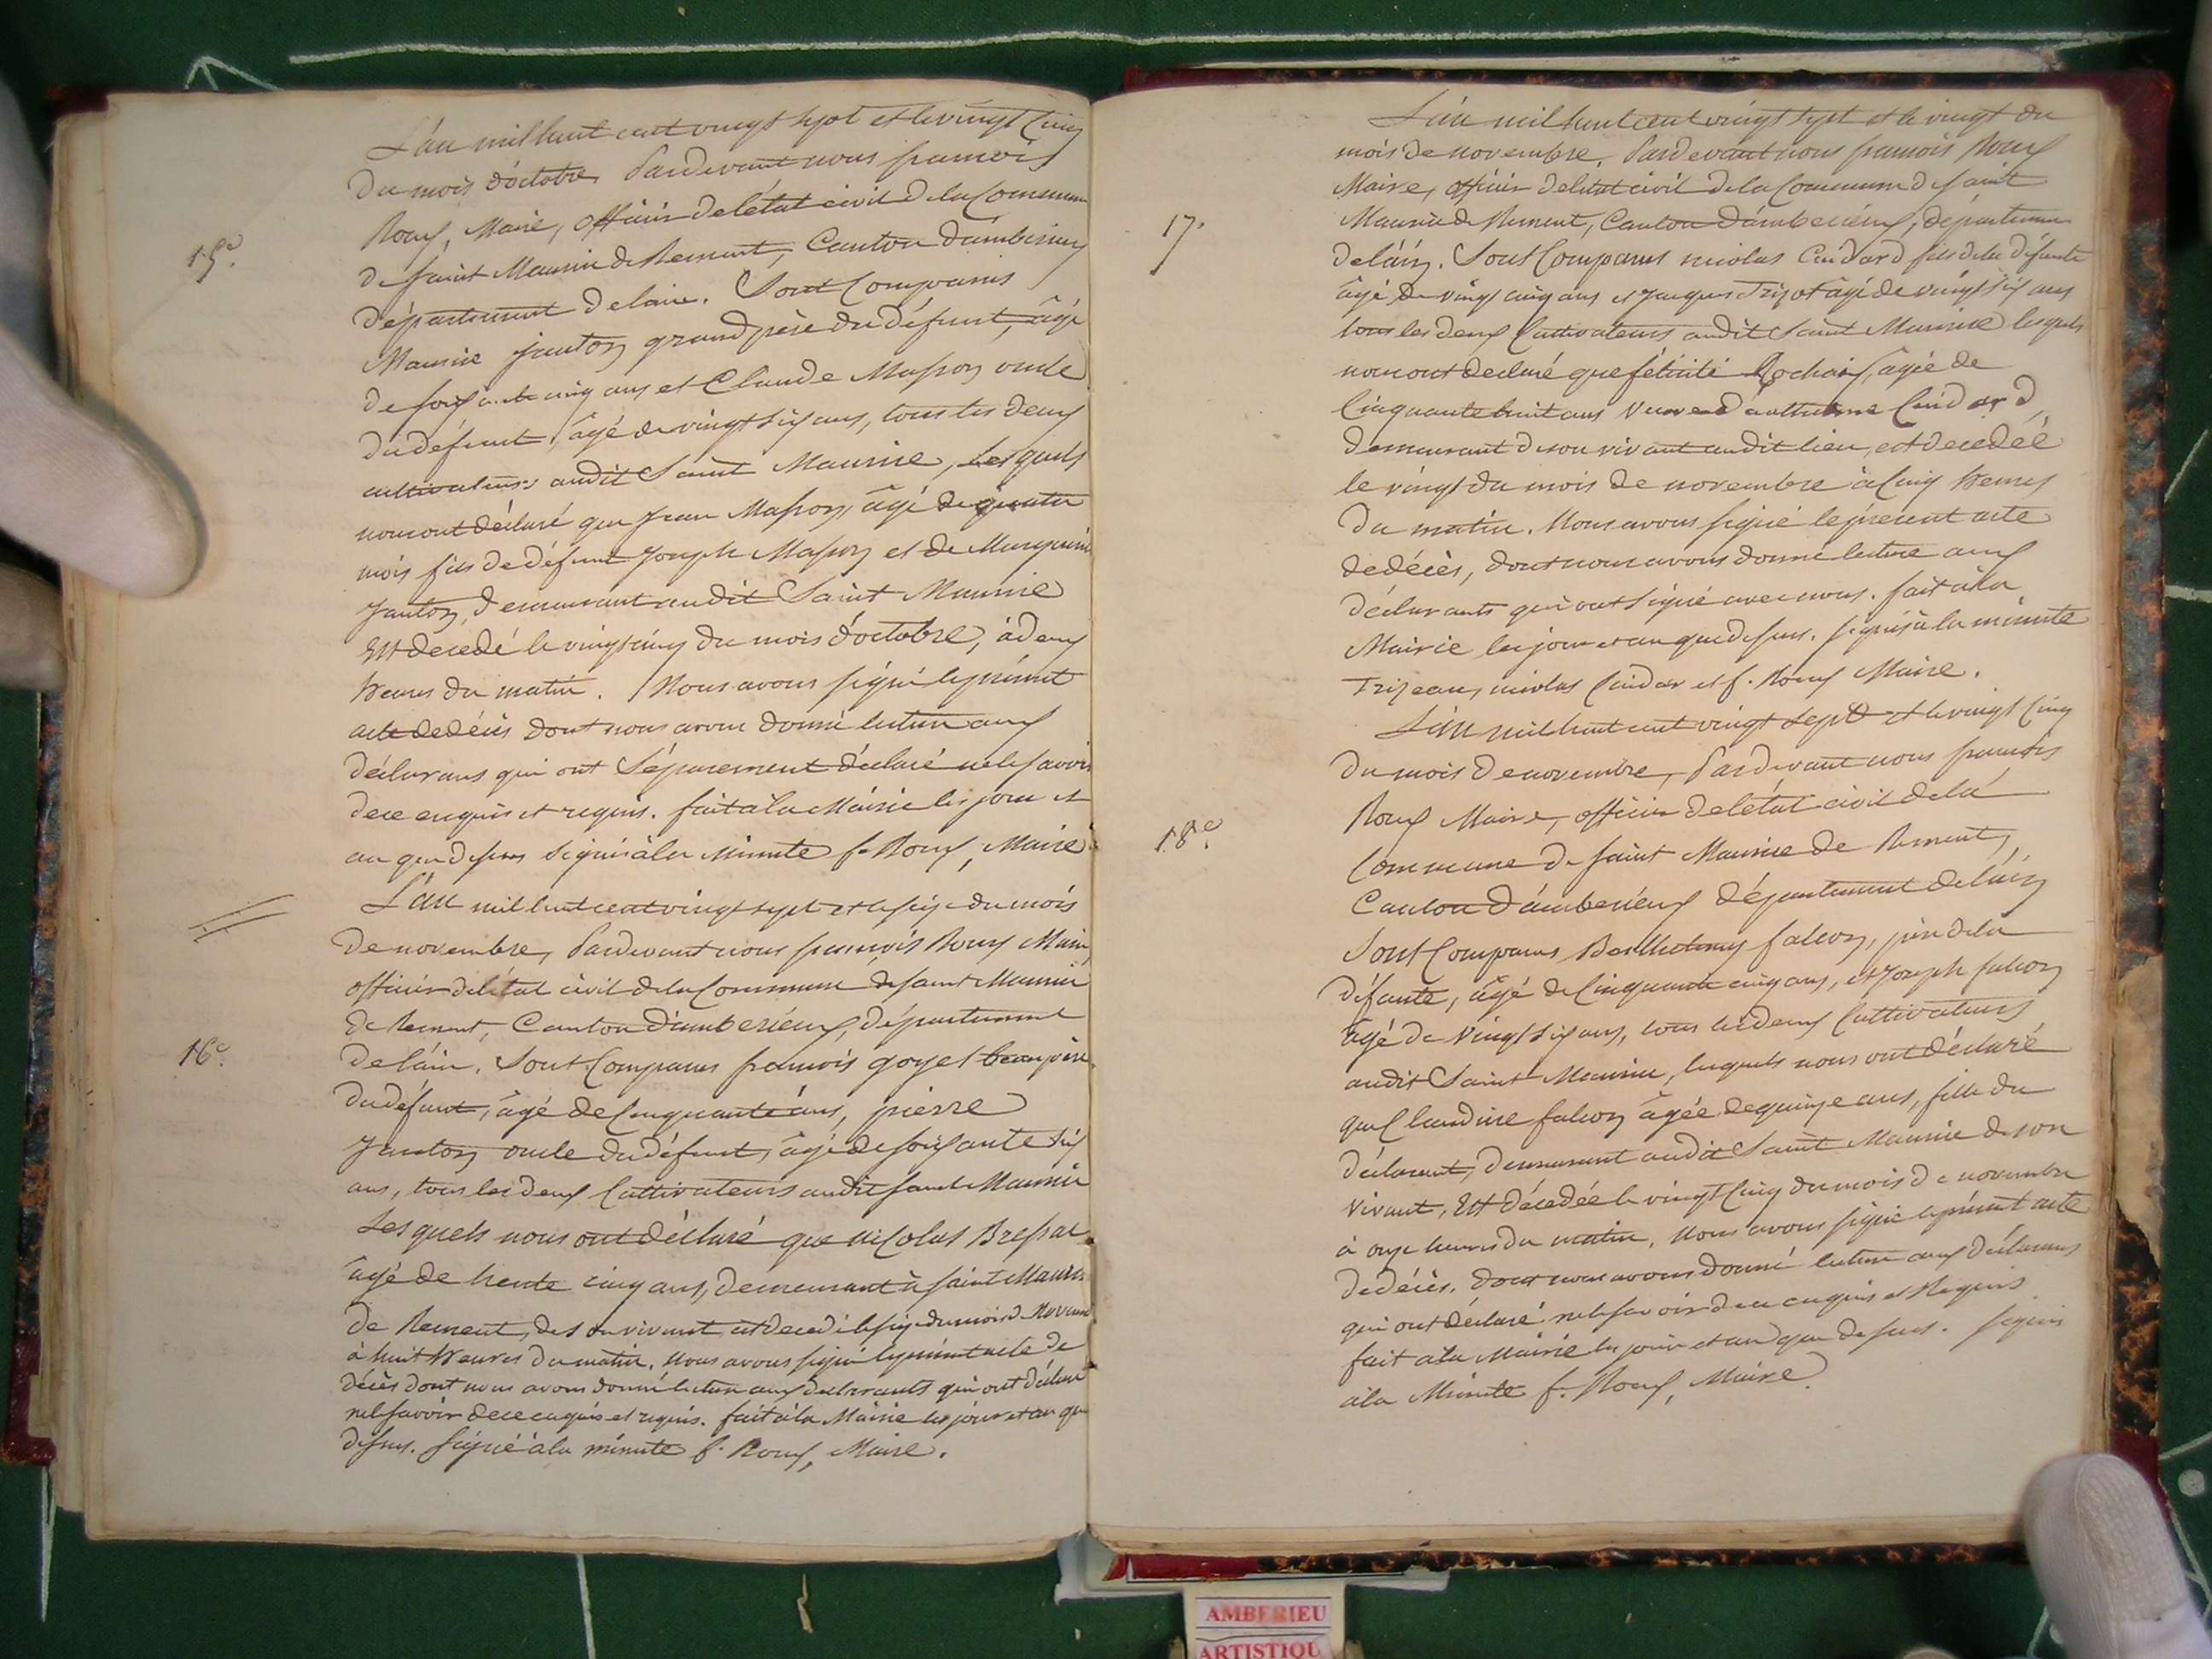 L'an mil huit cent vingt sept et le vingt cinq
du mois d'octobre Pardevant nous francois
Roux, Maire, officier de l'état civil de la Commune
15e.
de saint Maurice de Rement, Canton d'amberieux
département de lain. Sont Comparus
Maurice Janton grand père du défunt, âgé
de soixante cinq ans et Claude Masson oncle
du défunt, âgé de vingt six ans, tous les deux
cultivateurs audit Saint Maurice, Lesquels
nous ont déclaré que Jean Masson, âgé de quatre
mois fils de défunt Joseph Masson et de
Janton, demeurant audit Saint Maurice
Est decedé le vingt cinq du mois d'octobre, à deux
heures du matin. Nous avons signé le présent
acte de décès dont nous avons donné lecture aux
déclarans qui ont Séparement déclaré ne le savoir
de ce enquis et requis. fait à la Mairie les jour et
an que dessus Signé à la Minute f. Roux, Maire
L'an mil huit cent vingt sept et le seize du mois
de novembre, Pardevant nous francois Roux Maire
officier de létat civil de la Commune de saint Maurice
de Rement, Canton d'amberieux, département
16e.
de láin. Sont Comparus francois goyet beau père
du défunt, âgé de Cinquante ans, pierre
Janton oncle du défunt, âgé de soixante six
ans, tous les deux Cultivateurs audit saint Maurice
Lesquels nous ont déclaré que nicolas Bressat
âgé de trente cinq ans, demeurant à saint Maurice
de Rement, de son vivant, est decedé le seize du mois de Novembre
à huit heures du matin. Nous avons signé le présent acte de
décès dont nous avons donné lecture aux déclarants qui ont déclaré
ne le savoir de ce enquis et requis. fait à la Mairie les jour et an que
dessus. Signé à la minute f. Roux, Maire.
L'an mil huit cent vingt sept et le vingt du
mois de novembre, Pardevant nous francois Roux
Maire, officier de létat civil de la Commune de saint
17.
Maurice de Rement, Canton d'amberieux, département
de láin. Sont Comparus nicolas Cuidard fils de la défunte
âgé de vingt cinq ans et Jacques âgé de vingt six ans
tous les deux Cultivateurs audit Saint Maurice lesquels
nous ont declaré que félicité Rochaix, âgée de
Cinquante huit ans Veuve d'anthelme Cuidard
demeurant de son vivant audit lieu, est decedée
le vingt du mois de novembre à Cinq heures
du matin. Nous avons signé le présent acte
de décès, dont nous avons donné lecture aux
déclarants qui ont signé avec nous. fait à la
Mairie les jour et an que dessus. signés à la minute
nicolas Cuidar et f. Roux Maire.
L'an mil huit cent vingt sept et le vingt Cinq
du mois de novembre, Pardevant nous francois
Roux Maire, officier de létat civil de la
18e.
Commune de saint Maurice de Rement,
Canton d'amberieux département de láin
Sont Comparus Barthelemy falcon, père de la
défunte, âgé de Cinquante cinq ans, et Joseph falcon
âgé de Vingt six ans, tous les deux Cultivateurs
audit Saint Maurice, lesquels nous ont déclaré
que Claudine falcon âgée de quinze ans, fille du
déclarant, demeurant audit Saint Maurice de son
vivant, Est décedée le vingt Cinq du mois de novembre
à onze heures du matin. Nous avons signé le présent acte
de décès. dont nous avons donné lecture aux déclarans
qui ont déclaré ne le savoir de ce enquis et Requis
fait à la Mairie les jour et an que dessus. Signés
à la Minute f. Roux, Maire.
AMBERIEU
ARTISTIQU